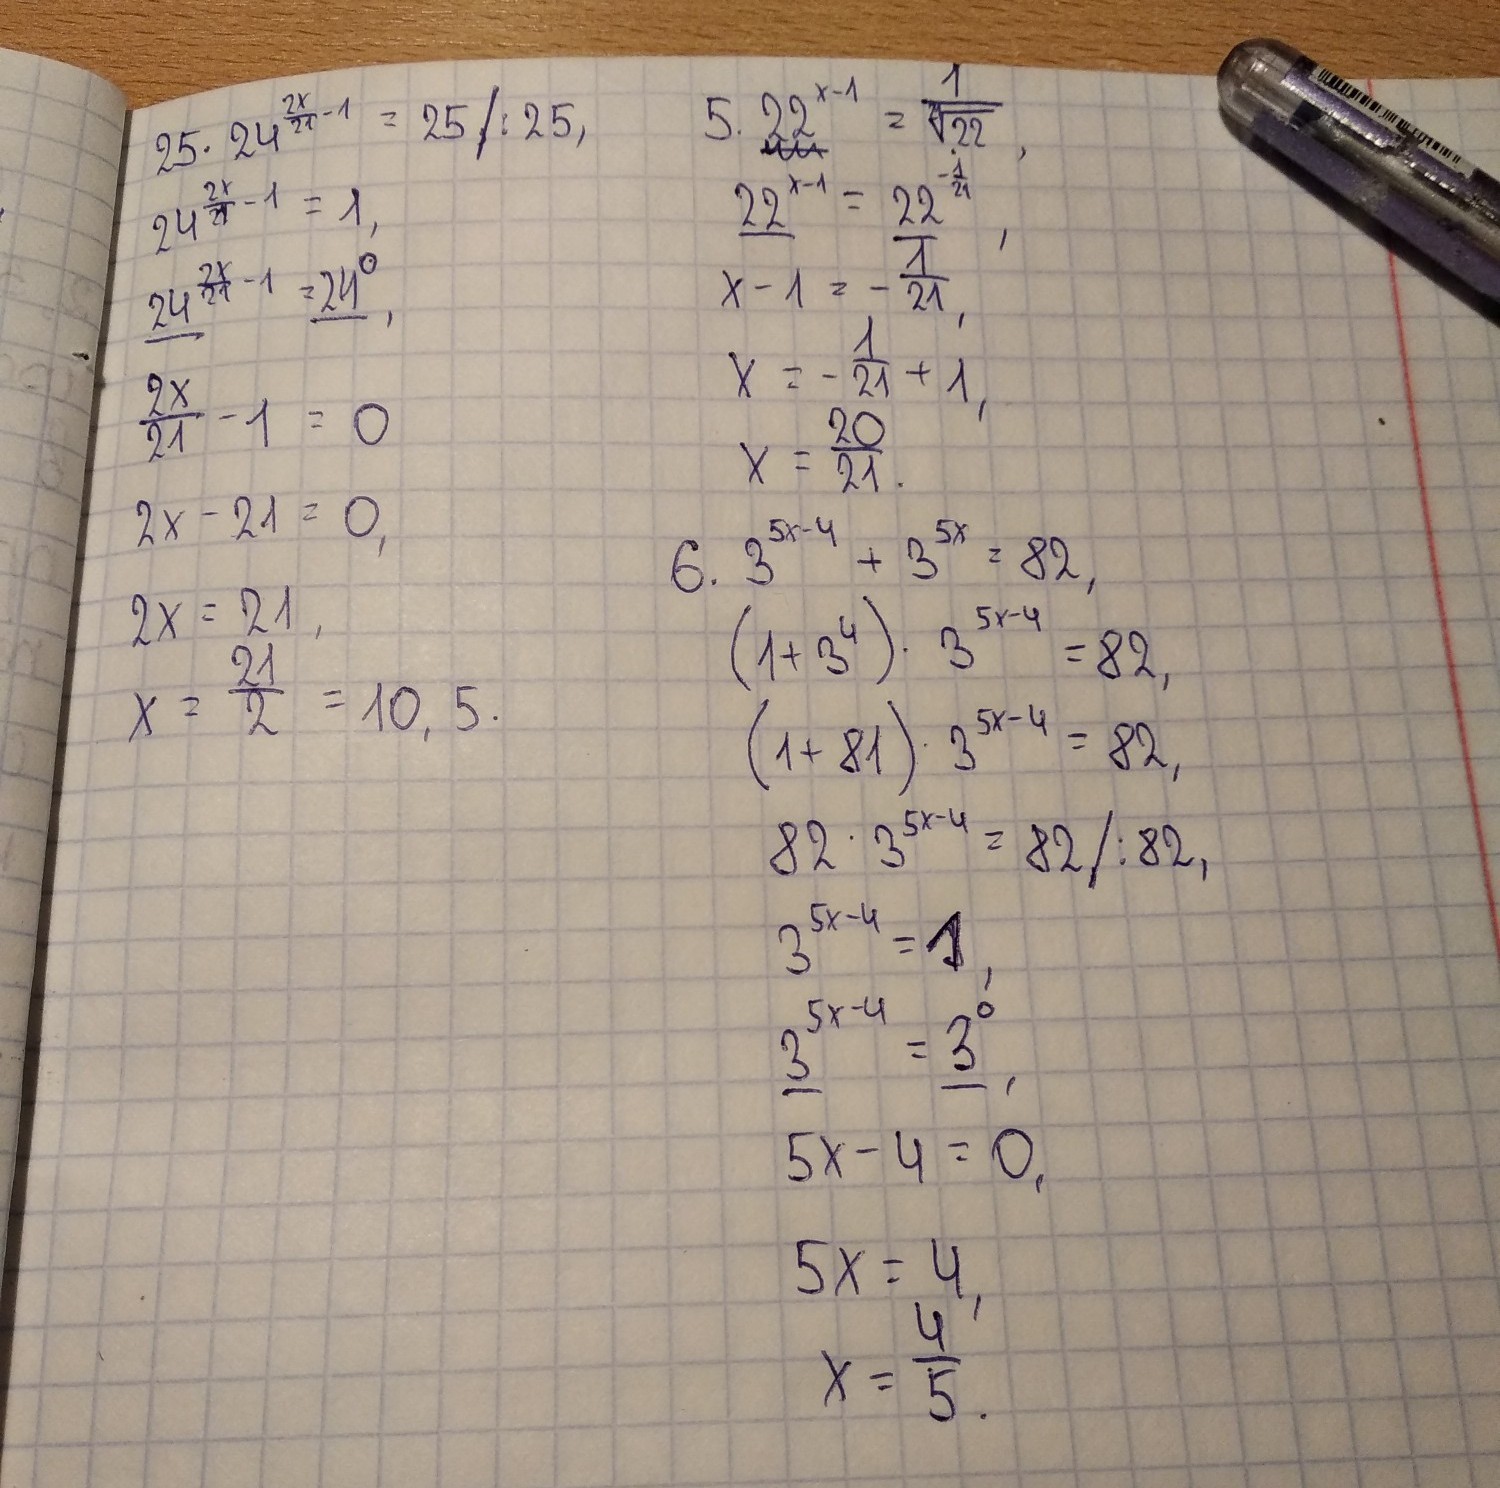 25 · 24^{\frac{2x}{21}-1} = 25 /: 25,
24^{\frac{2x}{21}-1} = 1,
24^{\frac{2x}{21}-1} = 24^0,
\frac{2x}{21} - 1 = 0
2x - 21 = 0,
2x = 21,
x = \frac{21}{2} = 10,5.
5. 22^{x-1} = \frac{1}{\sqrt[21]{22}},
22^{x-1} = 22^{-\frac{1}{21}},
x - 1 = -\frac{1}{21},
x = -\frac{1}{21} + 1,
x = \frac{20}{21}.
6. 3^{5x-4} + 3^{5x} = 82,
(1 + 3^4) · 3^{5x-4} = 82,
(1 + 81) · 3^{5x-4} = 82,
82 · 3^{5x-4} = 82 /: 82,
3^{5x-4} = 1,
3^{5x-4} = 3^0,
5x - 4 = 0,
5x = 4,
x = \frac{4}{5}.